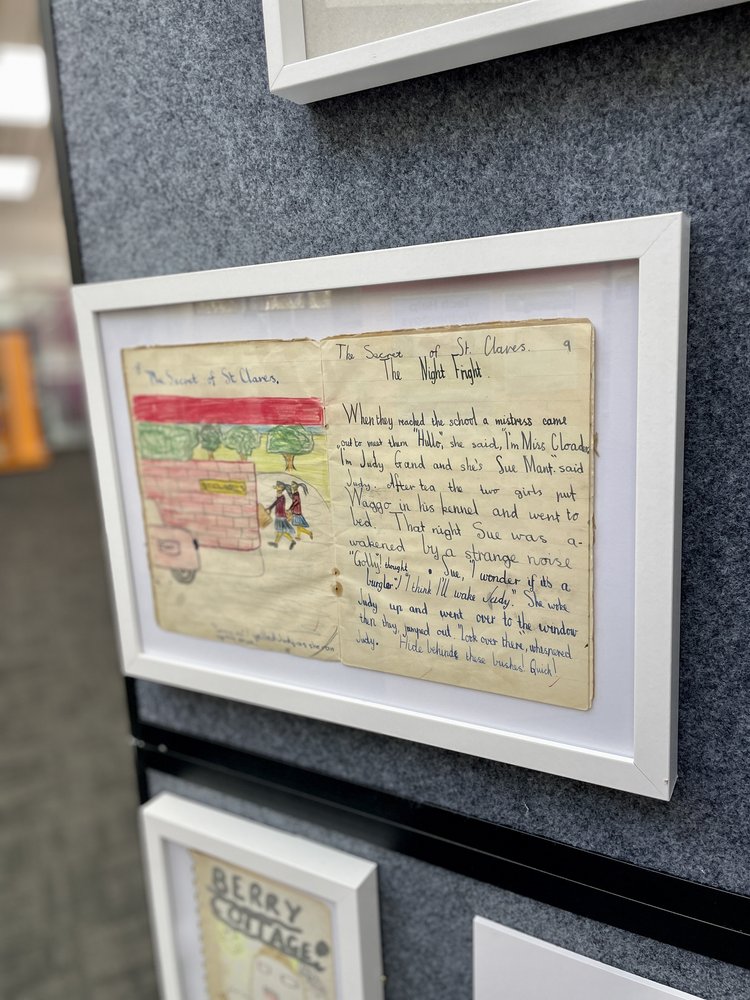 The Secret of St Clares.
The Secret of St. Clares. 9
The Night Fright.
When they reached the school a mistress came
out to meet them "Hullo," she said, "I'm Miss Cloader
"I'm Judy Gand and she's Sue Mant." said
Judy. After tea the two girls put
Waggo in his kennel and went to
bed. That night Sue was a-
wakened by a strange noise
"Golly! thought Sue, "I wonder if it's a
burglar"! "I think I'll wake Judy." She woke
Judy up and went over to the window
then they jumped out "Look over there", whispered
Judy. Hide behind these bushes! Quick!
yelled Judy as she ran
BERRY
COTTAGE.